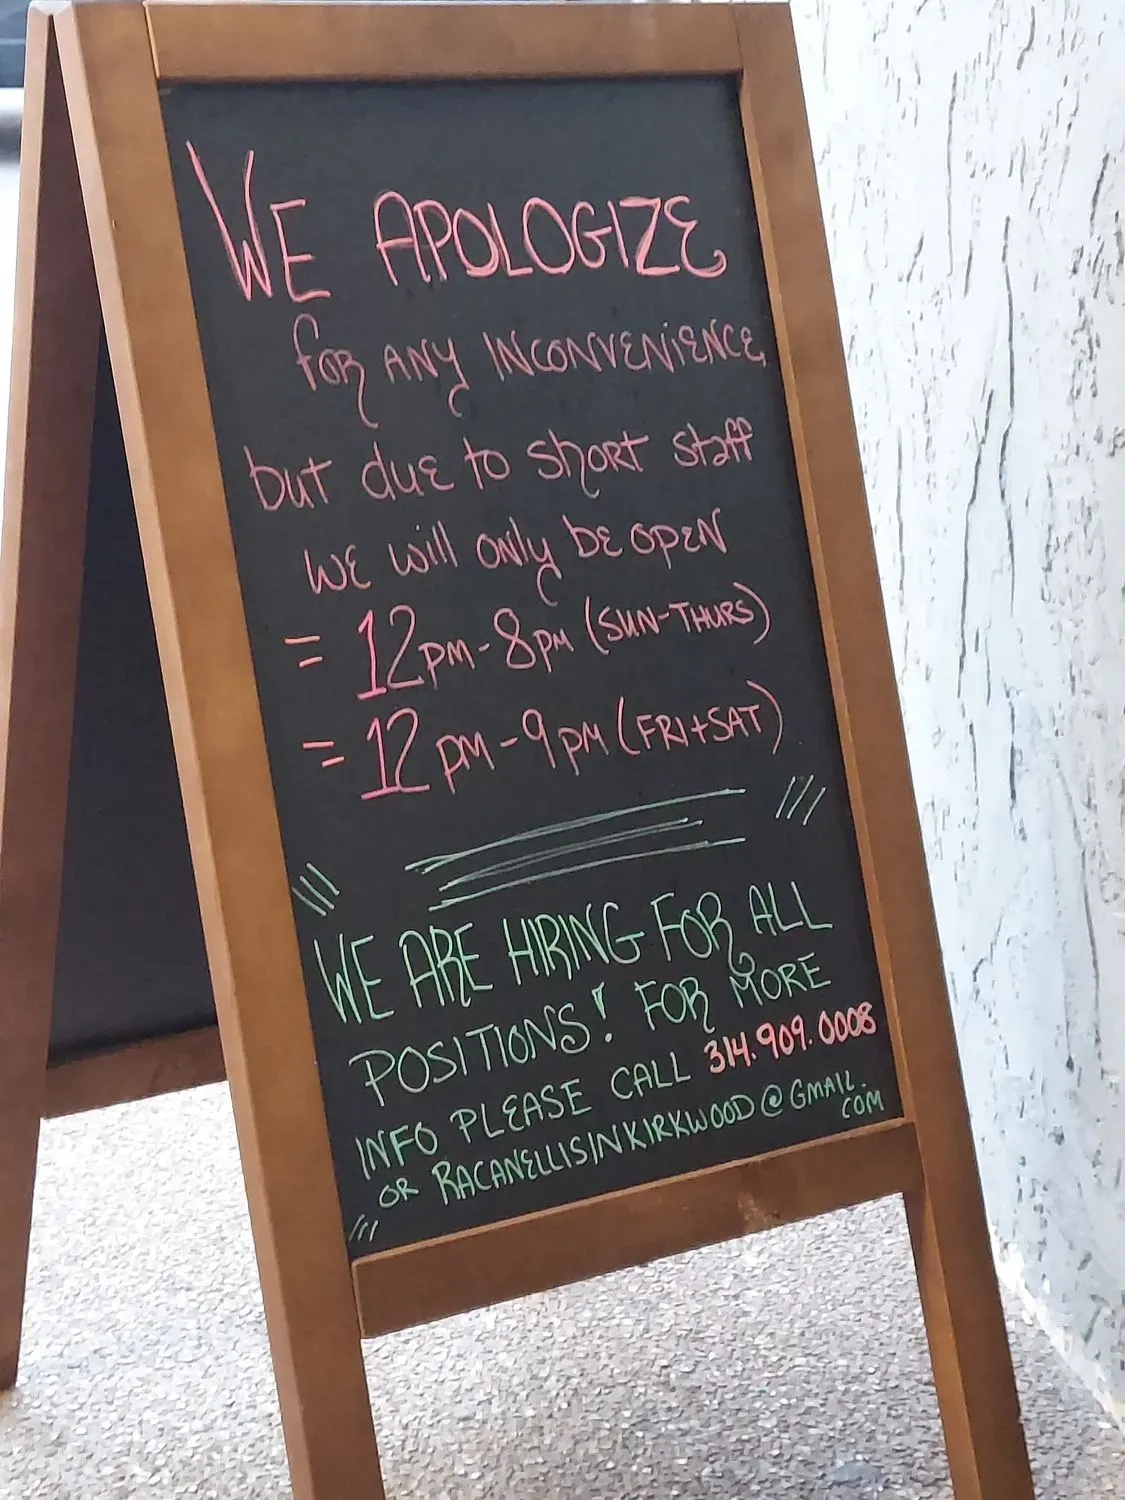 WE APOLOGIZE
for ANY INCONVENIENCE,
but due to short staff
we will only be open
= 12pm - 8pm (SUN-THURS)
= 12pm - 9pm (FRI+SAT)
WE ARE HIRING FOR ALL
POSITIONS! FOR MORE
INFO PLEASE CALL 314.909.0008
OR RACANELLISINKIRKWOOD@GMAIL.
COM